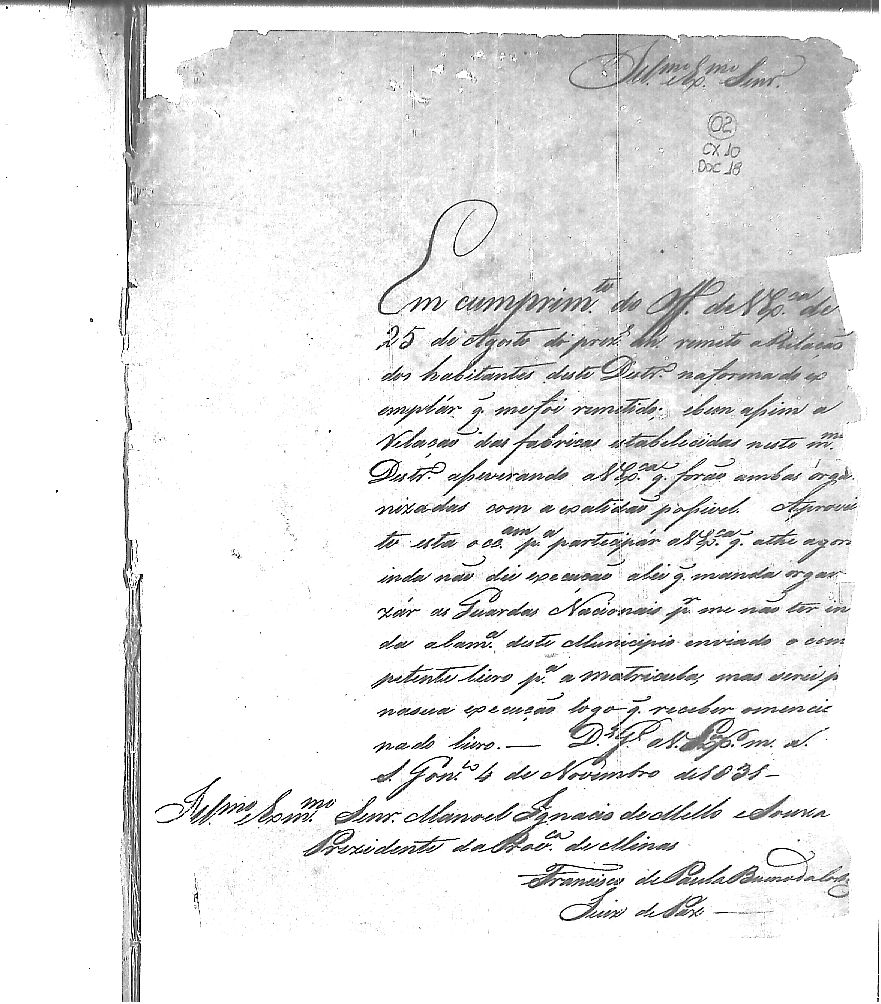 Illmo e Exmo Senr.
02
CX 10
DOC 18
Em cumprimto do Off. de V Exca de
25 de Agosto do prezo remeto a Relação
dos habitantes deste Destro na forma do ex
emplár q̃ me foi remetido; e bem assim a
Relação das fabricas estabelecidas neste mmo
Destro asseverando a V Exca q̃ forão ambas órga
nizadas com a exatidão possivel. Aprovei
to esta occam pa participár a V Exca q̃ athe agor
inda não dei execução a lei q̃ manda orgar
zár as Guardas Nacionais pr me não ter in
da a Cama deste Municipio enviado o com
petente livro pa a matricula, mas serei p
na sua execução logo q̃ receber o mencio
nado livro. — Ds Ge a V. Exca ms as
S Gonco 4 de Novembro de 1831 —
Illmo e Exmo Senr Manoel Ignacio de Mello e Souza
Prezidente da Prova de Minas
Francisco de Paula
Juiz de Paz —